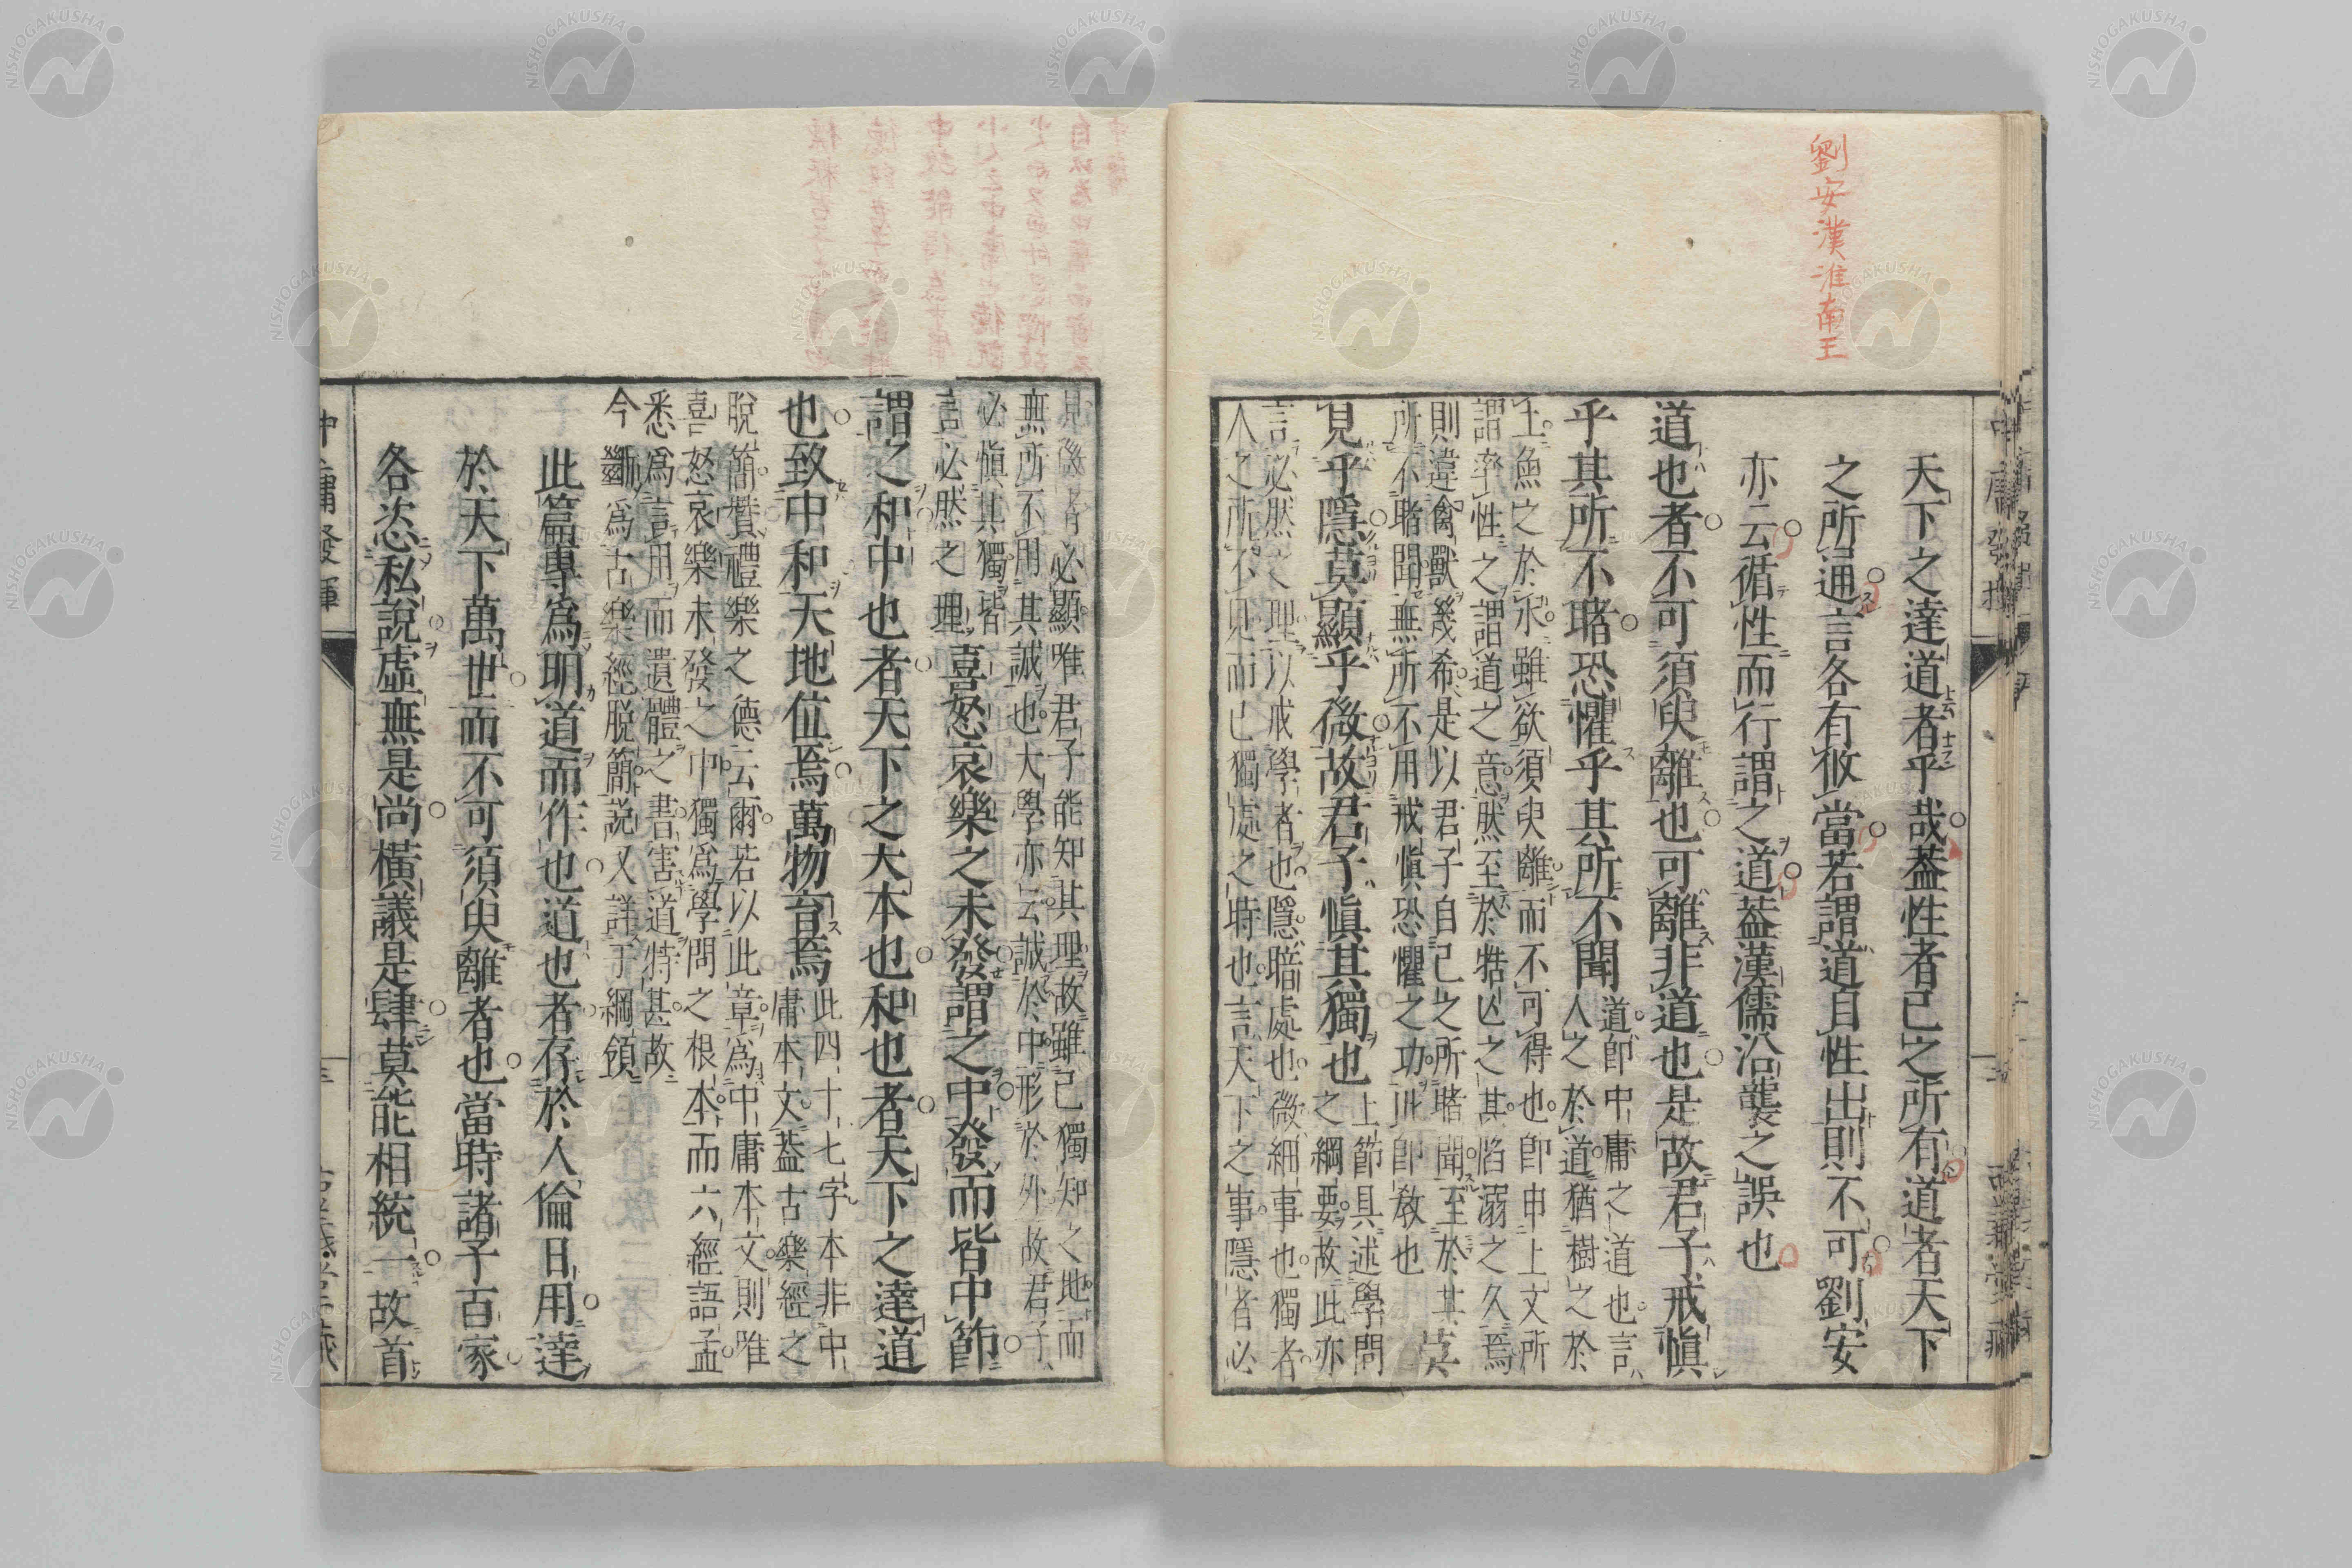 劉安漢淮南王
天下之達道者乎哉蓋性者己之所有道者天下
之所通言各有攸當若謂道自性出則不可劉安
亦云循性而行謂之道蓋漢儒沿襲之誤也
道也者不可須臾離也可離非道也是故君子戒愼
乎其所不睹恐懼乎其所不聞
道卽中庸之道也言
人之於道猶樹之於
土魚之於水雖欲須臾離而不可得也卽申上文所
謂率性之謂道之意然至於牿亡之其陷溺之久焉
則違禽獸幾希是以君子自己之所睹聞至於其莫
所不睹聞無所不用戒愼恐懼之功此卽敎也
見乎隱莫顯乎微故君子愼其獨也
上節具述學問
之綱要故此亦
言必然之理以戒學者也隱暗處也微細事也獨者
人之所不見而己獨處之時也言天下之事隱者必
見微者必顯唯君子能知其理故雖己獨知之地而
無所不用其誠也大學亦云誠於中形於外故君子
必愼其獨皆
言必然之理
喜怒哀樂之未發謂之中發而皆中節
謂之和中也者天下之大本也和也者天下之達道
也致中和天地位焉萬物育焉
此四十七字本非中
庸本文蓋古樂經之
脫簡贊禮樂之德云爾若以此章爲中庸本文則唯
喜怒哀樂未發之中獨爲學問之根本而六經語孟
悉爲言用而遺體之書害道特甚故
今斷爲古樂經脫簡說又詳于綱領
此篇專爲明道而作也道也者存於人倫日用達
於天下萬世而不可須臾離者也當時諸子百家
各恣私說虛無是尚橫議是肆莫能相統一故首
中庸發揮
NISHOGAKUSHA